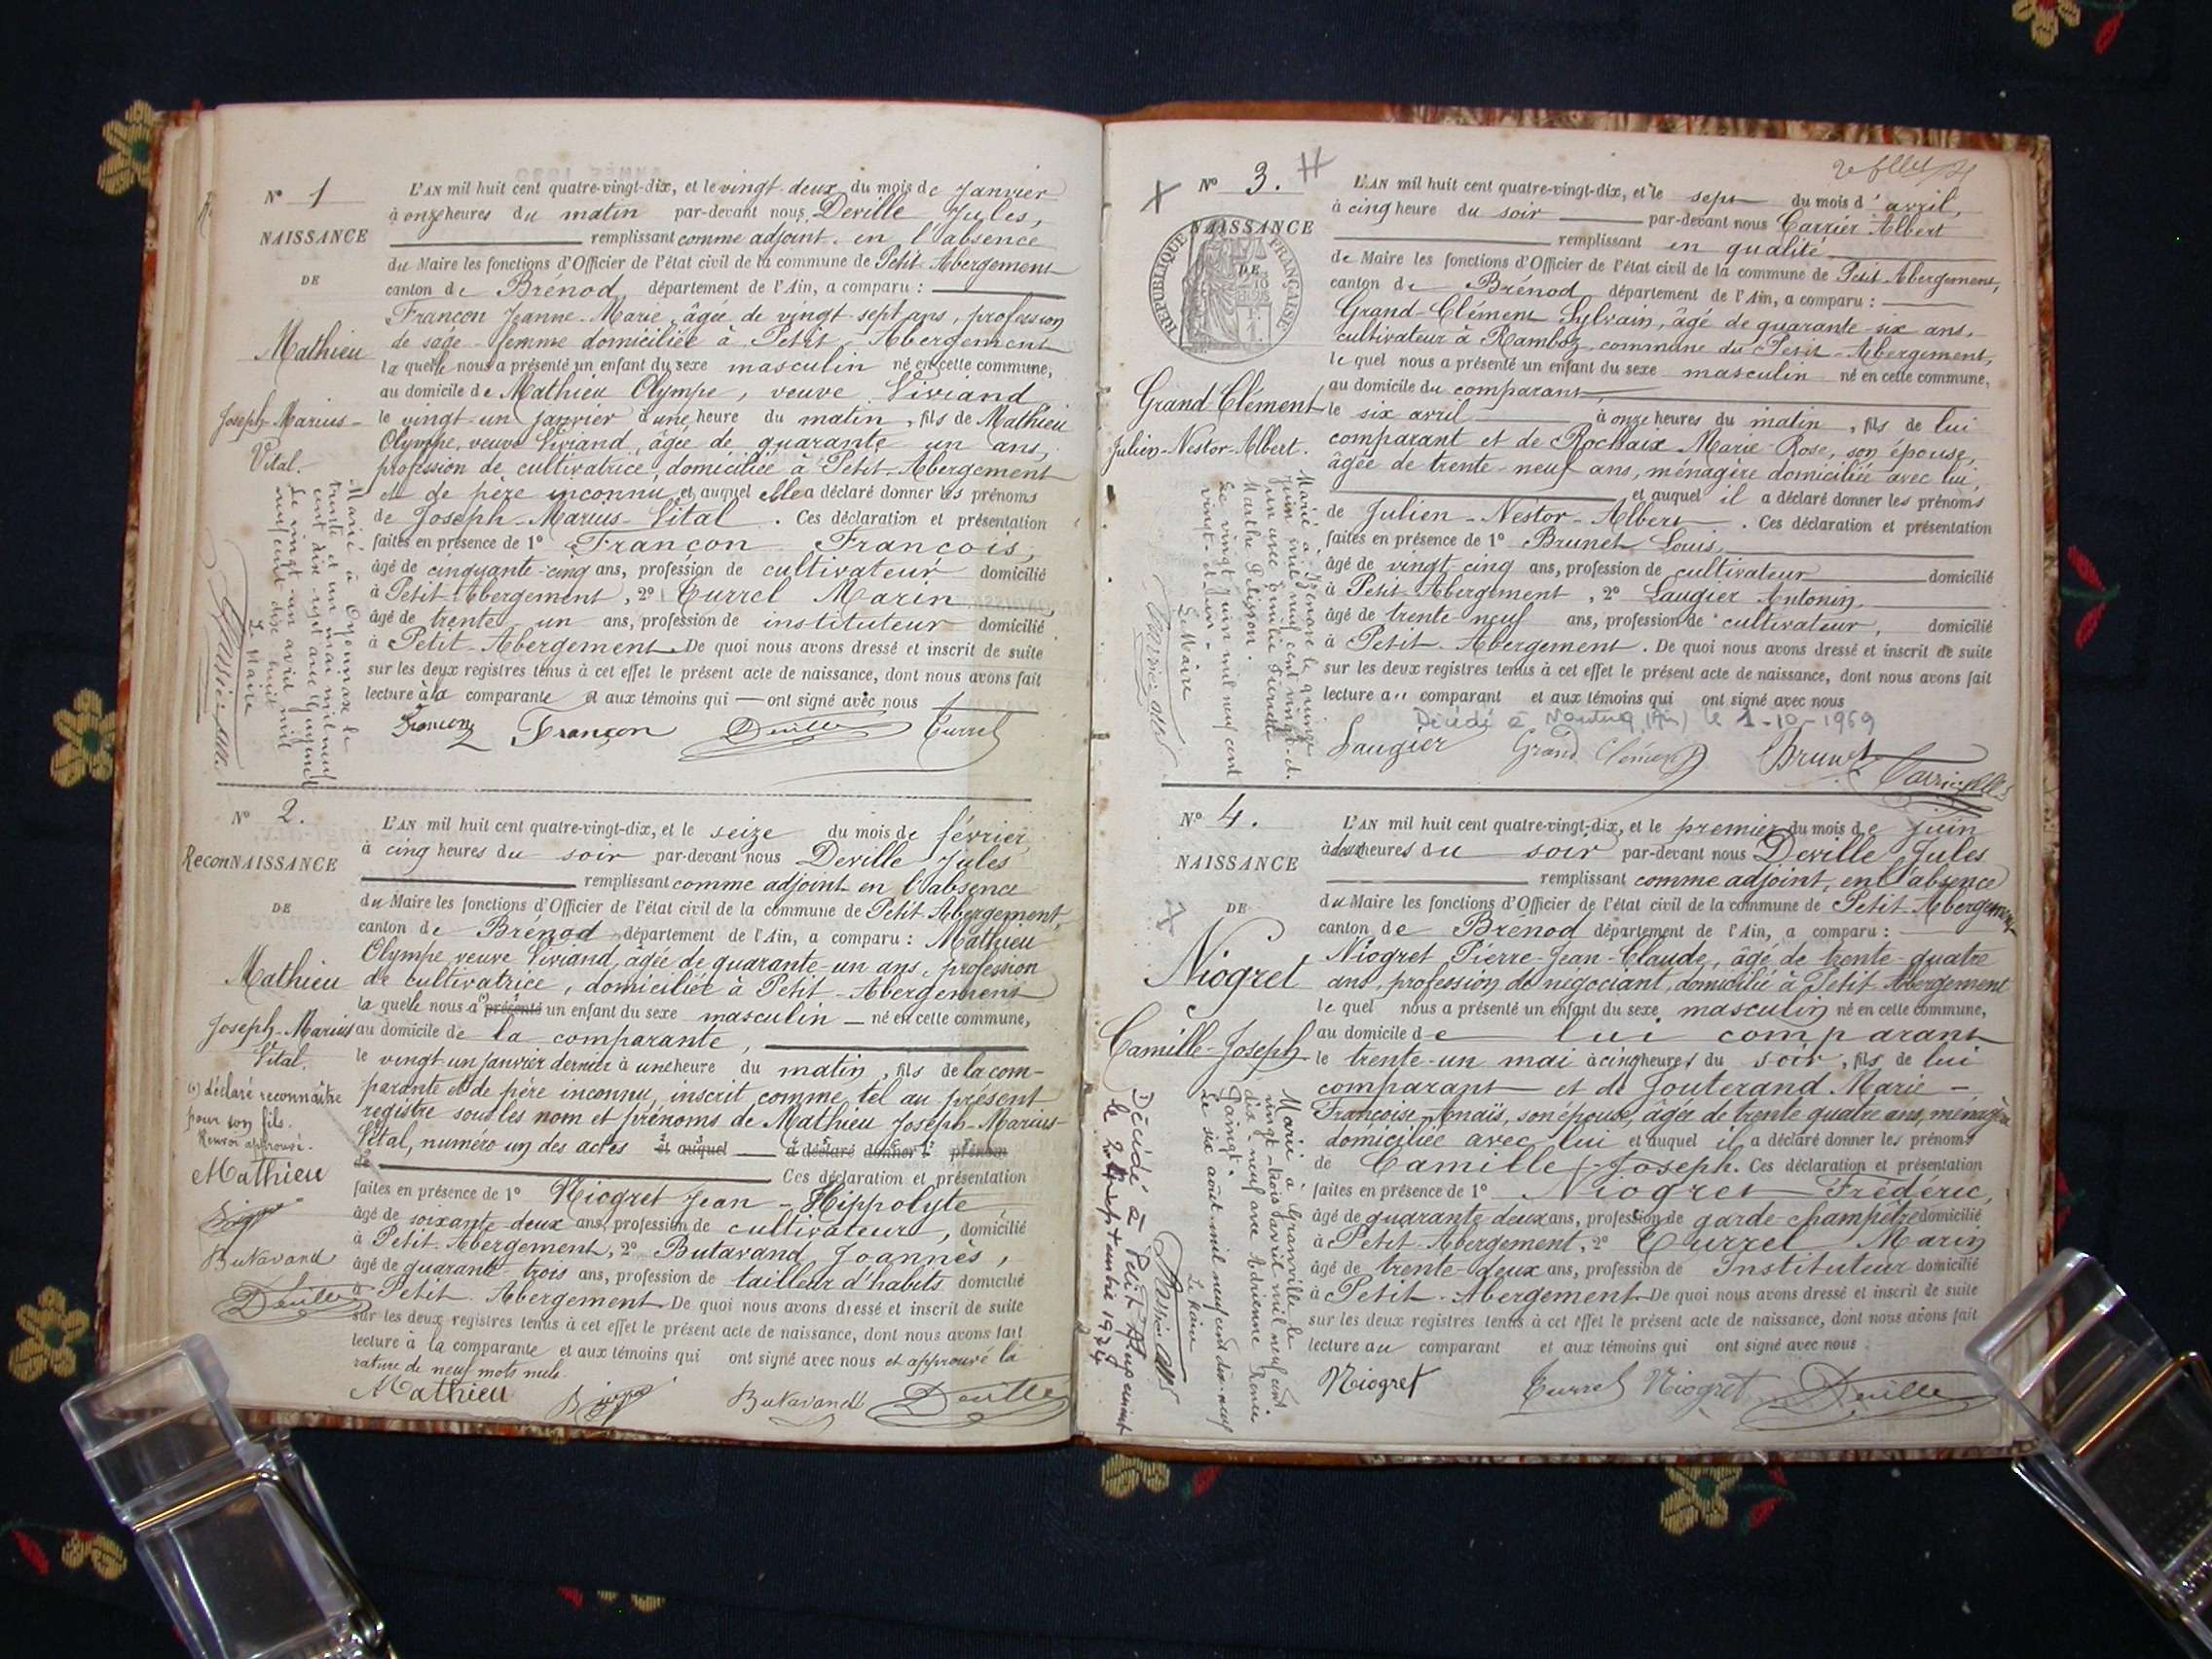 N° 1
NAISSANCE
DE
Mathieu
Joseph-Marius-
Vital.
Marié à Oyonnax le
trente et un mai mil neuf
cent dix sept avec
Le vingt-un avril mil
neuf cent dix huit
Le Maire
L'AN mil huit cent quatre-vingt-dix, et le vingt-deux du mois de Janvier
à onze heures du matin par-devant nous Deville Jules,
remplissant comme adjoint en l'absence
du Maire les fonctions d'Officier de l'état civil de la commune de Petit-Abergement
canton de Brénod département de l'Ain, a comparu :
Françon Jeanne-Marie, âgée de vingt-sept ans, profession
de sage-femme domiciliée à Petit-Abergement
la quelle nous a présenté un enfant du sexe masculin né en cette commune,
au domicile de Mathieu Olympe, veuve Liviand
le vingt-un janvier à une heure du matin, fils de Mathieu
Olympe, veuve Liviand, âgée de quarante-un ans,
profession de cultivatrice, domiciliée à Petit-Abergement
et de père inconnu, et auquel elle a déclaré donner les prénoms
de Joseph-Marius-Vital. Ces déclaration et présentation
faites en présence de 1° Françon François,
âgé de cinquante-cinq ans, profession de cultivateur domicilié
à Petit-Abergement, 2° Currel Marin
âgé de trente-un ans, profession de instituteur domicilié
à Petit-Abergement. De quoi nous avons dressé et inscrit de suite
sur les deux registres tenus à cet effet le présent acte de naissance, dont nous avons fait
lecture à la comparante et aux témoins qui ont signé avec nous
Françon Françon Deville Currel
N° 2.
ReconNAISSANCE
DE
Mathieu
Joseph-Marius
Vital.
(1) déclaré reconnaître
pour son fils.
Renvoi approuvé.
Mathieu
Butavand
Deville
L'AN mil huit cent quatre-vingt-dix, et le seize du mois de février
à cinq heures du soir par-devant nous Deville Jules
remplissant comme adjoint en l'absence
du Maire les fonctions d'Officier de l'état civil de la commune de Petit-Abergement,
canton de Brénod département de l'Ain, a comparu : Mathieu
Olympe, veuve Liviand, âgée de quarante-un ans, profession
de cultivatrice, domiciliée à Petit-Abergement
la quelle nous a (1) présenté un enfant du sexe masculin né en cette commune,
au domicile de la comparante,
le vingt-un janvier dernier à une heure du matin, fils de la com-
parante et de père inconnu, inscrit comme tel au présent
registre sous les nom et prénoms de Mathieu Joseph-Marius-
Vital, numéro un des actes et auquel a déclaré donner les prénom
de Ces déclaration et présentation
faites en présence de 1° Niogret Jean-Hippolyte
âgé de soixante-deux ans, profession de cultivateur, domicilié
à Petit-Abergement, 2° Butavand Joannès,
âgé de quarante-trois ans, profession de tailleur d'habits domicilié
à Petit-Abergement. De quoi nous avons dressé et inscrit de suite
sur les deux registres tenus à cet effet le présent acte de naissance, dont nous avons fait
lecture à la comparante et aux témoins qui ont signé avec nous et approuvé la
rature de neuf mots nuls.
Mathieu Butavand Deville
N° 3.
NAISSANCE
DE
RÉPUBLIQUE FRANÇAISE
Grand-Clément
Julien-Nestor-Albert.
Marié à Genove le quinze
juin mil neuf cent vingt-et-
un avec Emilie Pierrette
Marthe Pelisson.
Le vingt juin mil neuf cent
vingt-et-un.
Le Maire
L'AN mil huit cent quatre-vingt-dix, et le sept du mois d'avril,
à cinq heure du soir par-devant nous Carrier Albert
remplissant en qualité
de Maire les fonctions d'Officier de l'état civil de la commune de Petit-Abergement,
canton de Brénod département de l'Ain, a comparu :
Grand-Clément Sylvain, âgé de quarante-six ans,
cultivateur à Ramboz, commune du Petit-Abergement,
le quel nous a présenté un enfant du sexe masculin né en cette commune,
au domicile du comparant,
le six avril à onze heures du matin, fils de lui
comparant et de Rochaix Marie-Rose, son épouse,
âgée de trente-neuf ans, ménagère domiciliée avec lui,
et auquel il a déclaré donner les prénoms
de Julien-Nestor-Albert. Ces déclaration et présentation
faites en présence de 1° Brunet Louis,
âgé de vingt-cinq ans, profession de cultivateur domicilié
à Petit-Abergement, 2° Laugier Antonin,
âgé de trente-neuf ans, profession de cultivateur, domicilié
à Petit-Abergement. De quoi nous avons dressé et inscrit de suite
sur les deux registres tenus à cet effet le présent acte de naissance, dont nous avons fait
lecture au comparant et aux témoins qui ont signé avec nous
Décédé à Nantua (Ain) le 1-10-1969
Laugier Grand Clément Brunet Carrier Alb
N° 4.
NAISSANCE
DE
Niogret
Camille-Joseph
Marié à Granville le
vingt-trois avril mil neuf cent
dix neuf avec Adrienne Renée
Le six août mil neuf cent dix-neuf
Le Maire
Décédé à Petit Abergement
le 24 septembre 1974
L'AN mil huit cent quatre-vingt-dix, et le premier du mois de juin
à deux heures du soir par-devant nous Deville Jules
remplissant comme adjoint, en l'absence
du Maire les fonctions d'Officier de l'état civil de la commune de Petit-Abergement
canton de Brénod département de l'Ain, a comparu :
Niogret Pierre-Jean-Claude, âgé de trente-quatre
ans, profession de négociant, domicilié à Petit-Abergement
le quel nous a présenté un enfant du sexe masculin né en cette commune,
au domicile de lui comparant
le trente-un mai à cinq heures du soir, fils de lui
comparant et de Jouterand Marie-
Françoise-Anaïs, son épouse, âgée de trente quatre ans, ménagère
domiciliée avec lui et auquel il a déclaré donner les prénoms
de Camille-Joseph. Ces déclaration et présentation
faites en présence de 1° Niogret Frédéric,
âgé de quarante-deux ans, profession de garde-champêtre domicilié
à Petit-Abergement, 2° Currel Marin
âgé de trente-deux ans, profession de Instituteur domicilié
à Petit-Abergement. De quoi nous avons dressé et inscrit de suite
sur les deux registres tenus à cet effet le présent acte de naissance, dont nous avons fait
lecture au comparant et aux témoins qui ont signé avec nous.
Niogret Currel Niogret Deville